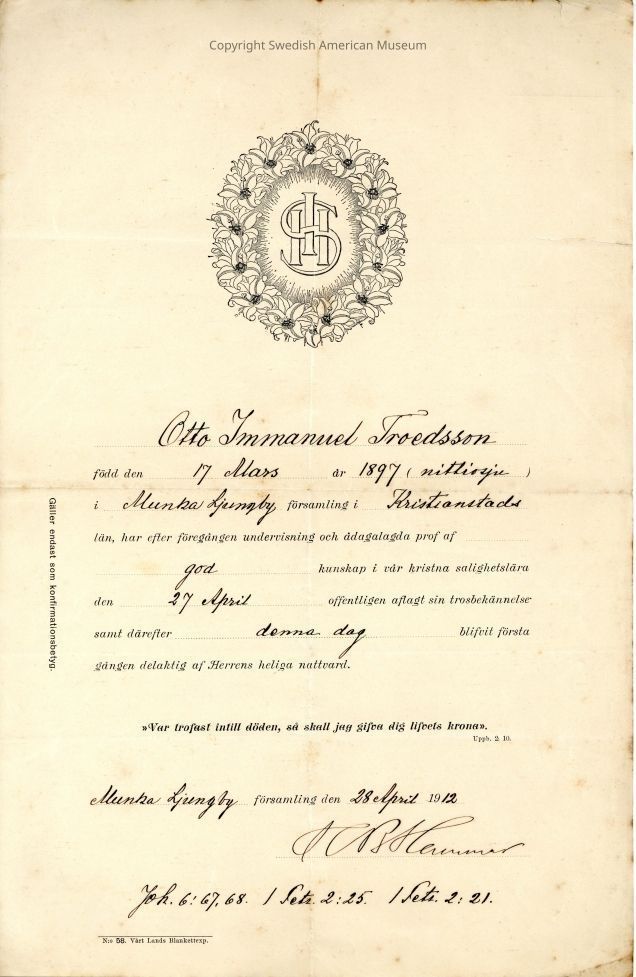 Copyright Swedish American Museum
IHS
Otto Immanuel Troedsson
född den 17 Mars år 1897 ( nittiosju )
i Munka Ljungby församling i Kristianstads
län, har efter föregången undervisning och ådagalagda prof af
god kunskap i vår kristna salighetslära
den 27 April offentligen aflagt sin trosbekännelse
samt därefter denna dag blifvit första
gången delaktig af Herrens heliga nattvard.
Gäller endast som konfirmationsbetyg.
»Var trofast intill döden, så skall jag gifva dig lifvets krona».
Uppb. 2: 10.
Munka Ljungby församling den 28 April 1912
Hammar
Joh. 6: 67, 68. 1 Petr. 2: 25. 1 Petr. 2: 21.
N:o 58. Vårt Lands Blankettexp.